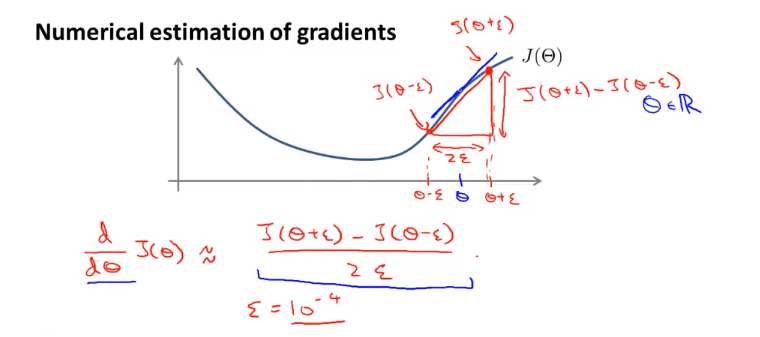 Numerical estimation of gradients
J(θ+ε)
J(Θ)
J(θ-ε)
J(θ+ε) - J(θ-ε)
θ ∈ ℝ
2ε
θ-ε θ θ+ε
d/dθ J(θ) ≈ (J(θ+ε) - J(θ-ε))/(2ε)
ε = 10⁻⁴